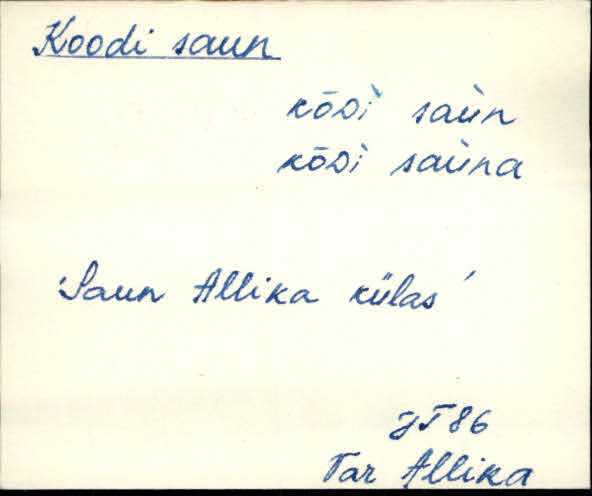 Koodi saun
kōDì saùn
kōDì saùna
'Saun Allika külas'
JT86
Var Allika